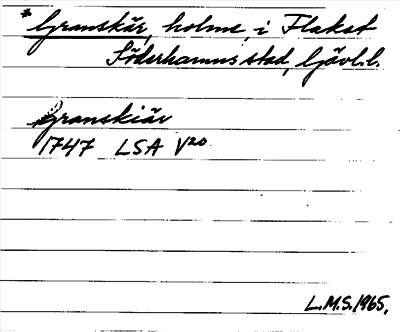 * Granskär, holme, i Flaket
Söderhamns stad, Gävl.l.
Granskiär
1747 LSA V20
L.M.S. 1965.